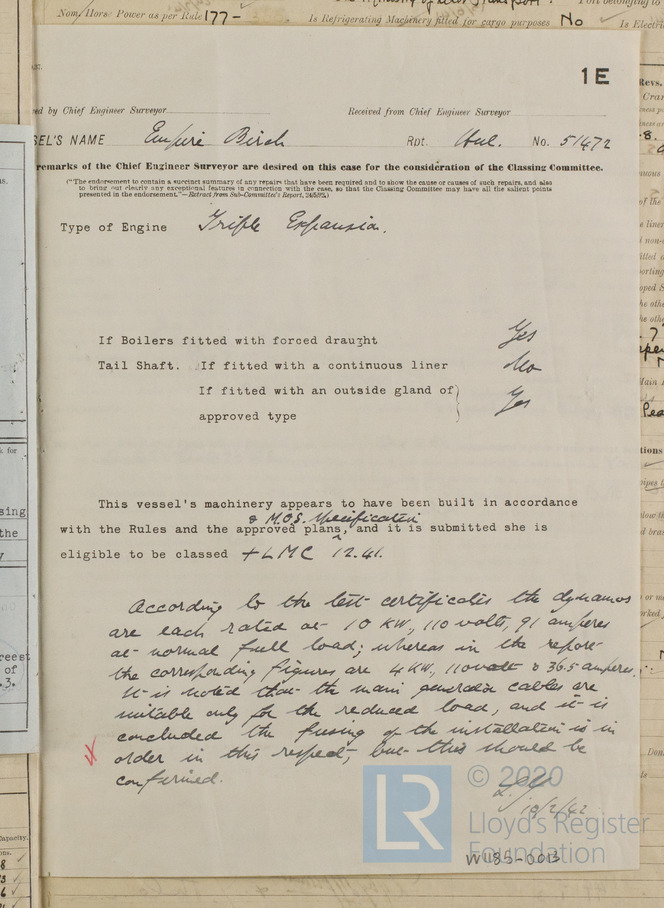 Nom. Horse Power as per Rule 177- Is Refrigerating Machinery fitted for cargo purposes No Is Electric
1E
ed by Chief Engineer Surveyor Received from Chief Engineer Surveyor
SEL'S NAME Empire Birch Rpt. Hul. No. 51472
remarks of the Chief Engineer Surveyor are desired on this case for the consideration of the Classing Committee.
("The endorsement to contain a succinct summary of any repairs that have been required and to show the cause or causes of such repairs, and also
to bring out clearly any exceptional features in connection with the case, so that the Classing Committee may have all the salient points
presented in the endorsement."—Extract from Sub-Committee's Report,
Type of Engine Triple Expansion.
If Boilers fitted with forced draught Yes
Tail Shaft. If fitted with a continuous liner No
If fitted with an outside gland of} Yes
approved type
This vessel's machinery appears to have been built in accordance
& M.O.S. Specification
with the Rules and the approved plans,^ and it is submitted she is
eligible to be classed +LMC 12.41.
According to the test certificates the dynamos
are each rated at 10 KW, 110 volts, 91 amperes
at normal full load; whereas in the report
the corresponding figures are 4 KW, 110 volt & 36.5 amperes.
It is noted that the main generator cables are
suitable only for the reduced load, and it is
concluded the fusing of the installation is in
order in this respect, but this should be
confirmed.
10/2/42
LR
© 2020
Lloyd's Register
Foundation
W1185-0013